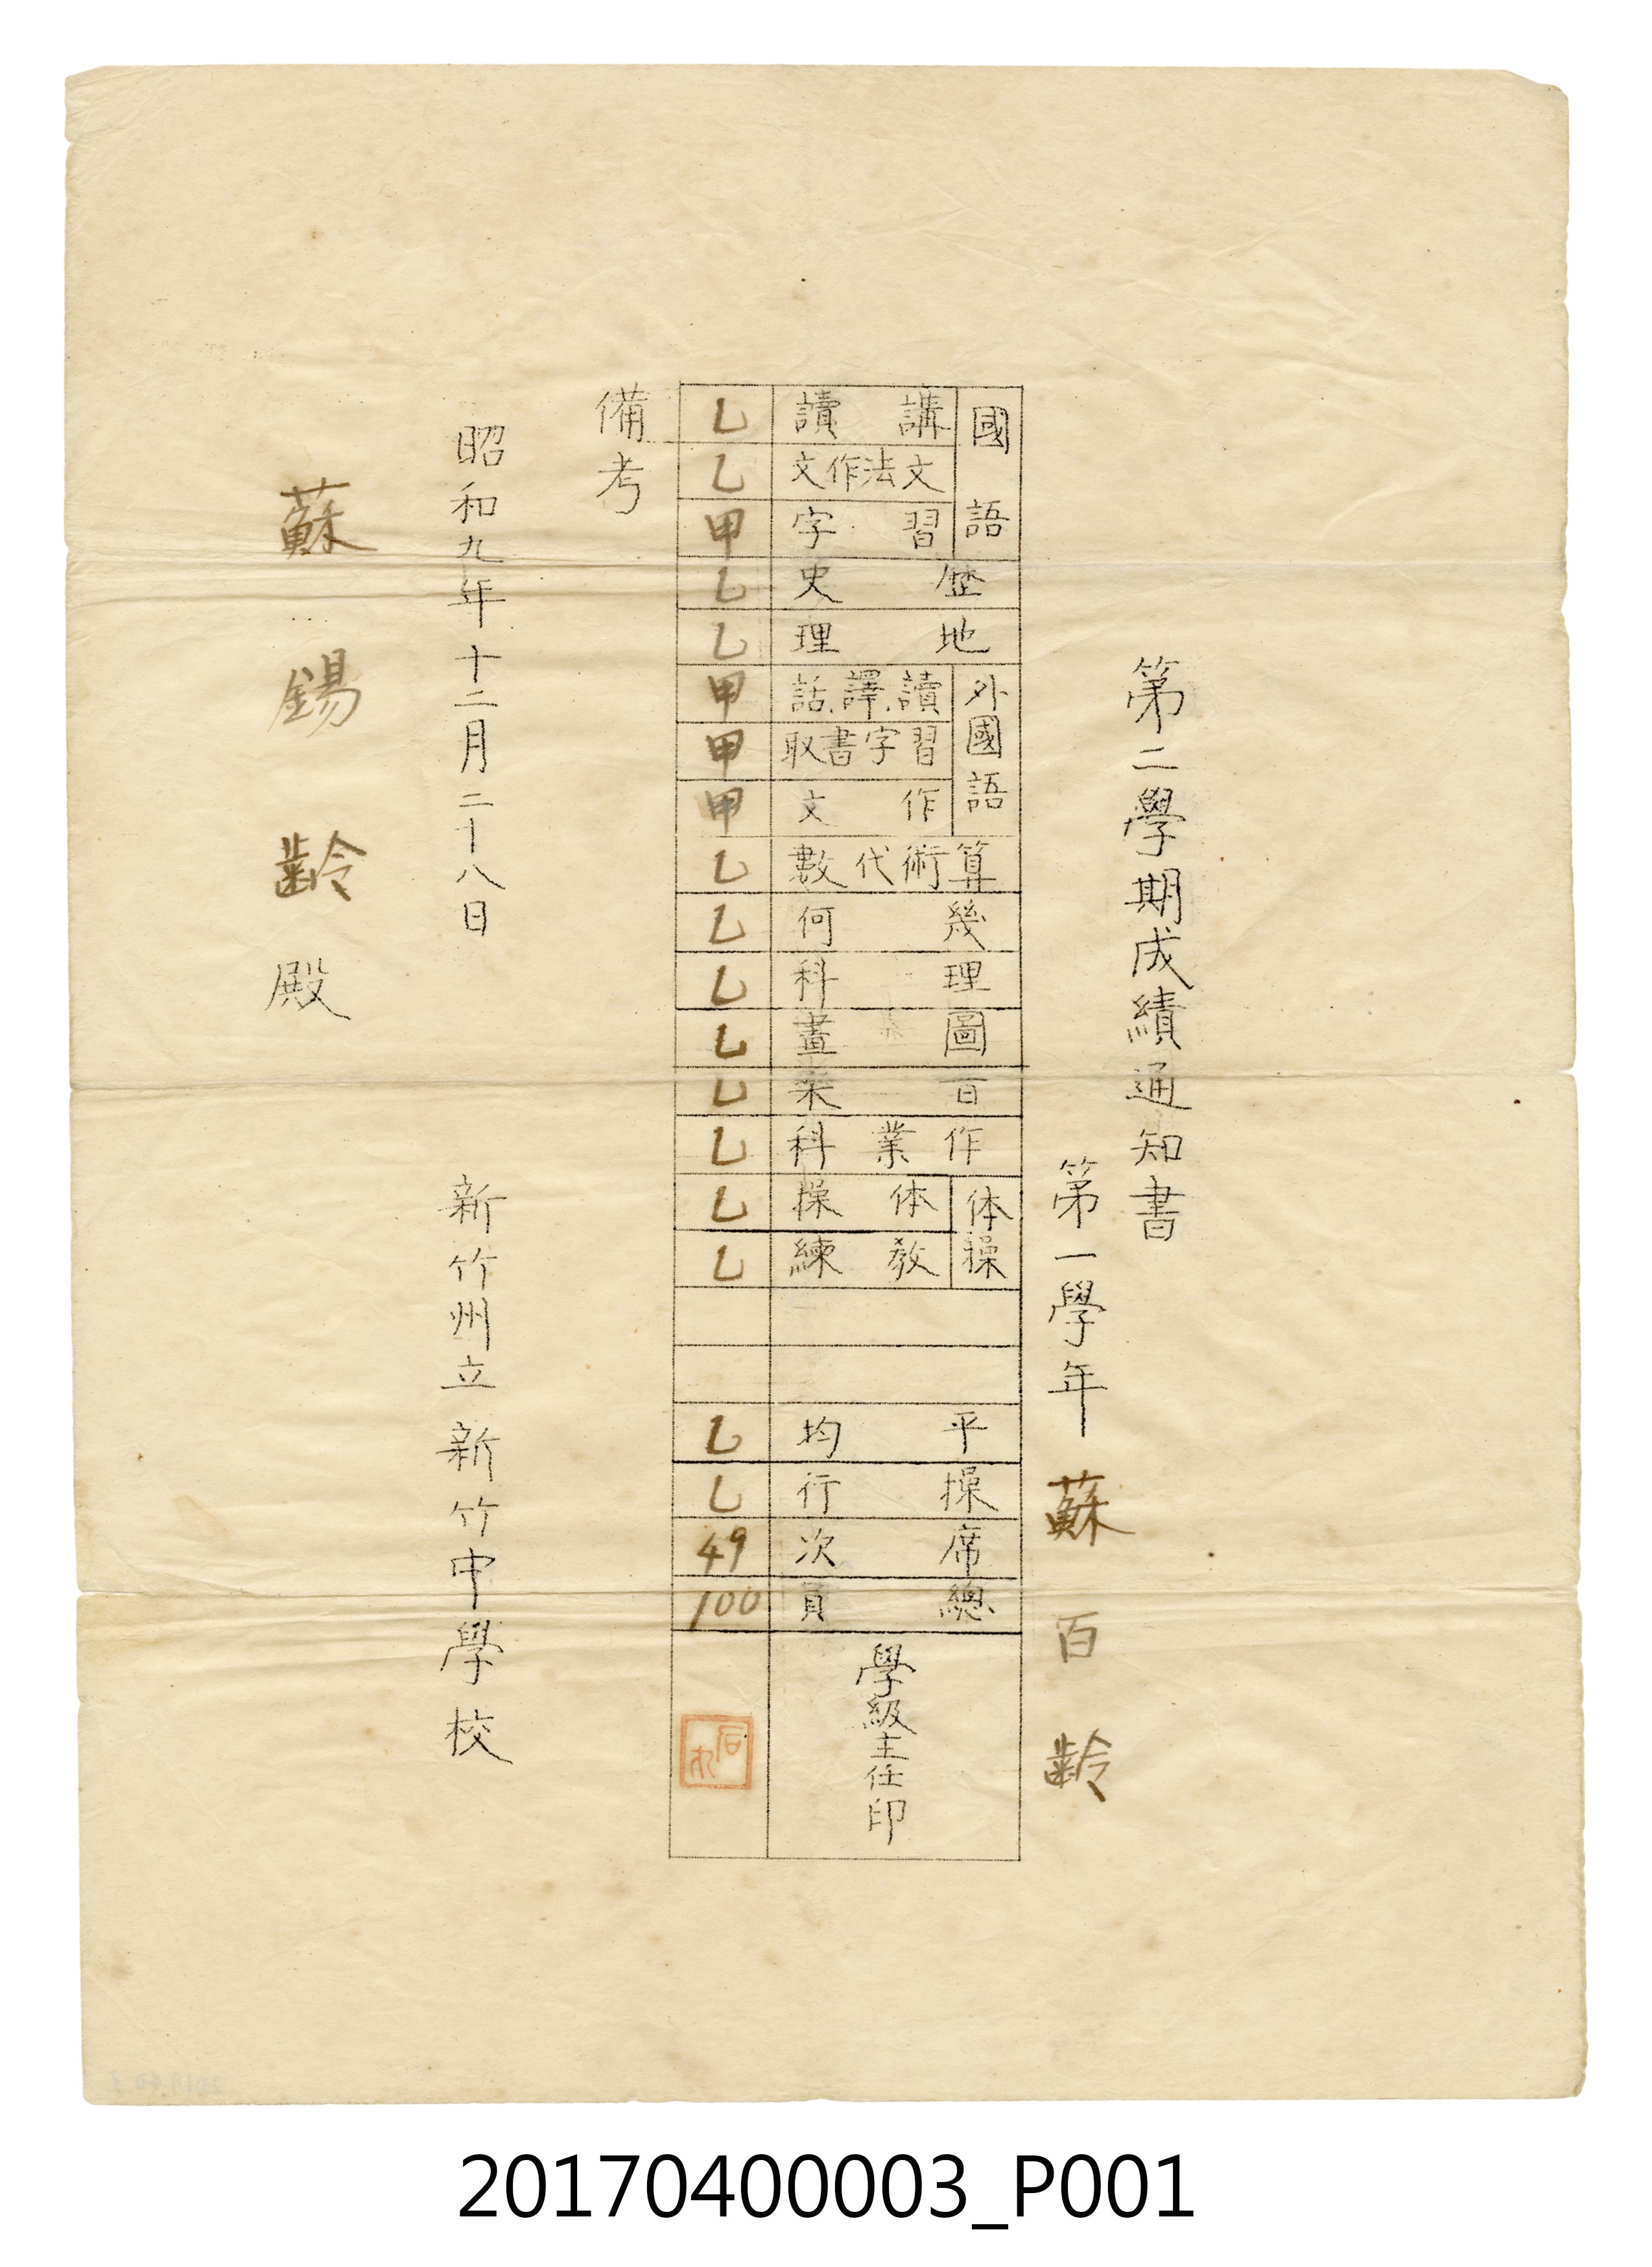 第二學期成績通知書
第一學年 蘇百齡
國語 講讀 乙
文法作文 乙
習字 甲
歴史 乙
地理 乙
外國語 讀.譯.話 甲
習字書取 甲
作文 甲
算術代數 乙
幾何 乙
理科 乙
圖畫 乙
音楽 乙
作業科 乙
体操 体操 乙
教練 乙
平均 乙
操行 乙
席次 49
總員 100
學級主任印
備考
昭和九年十二月二十八日
新竹州立新竹中學校
蘇錫齡殿
20170400003_P001